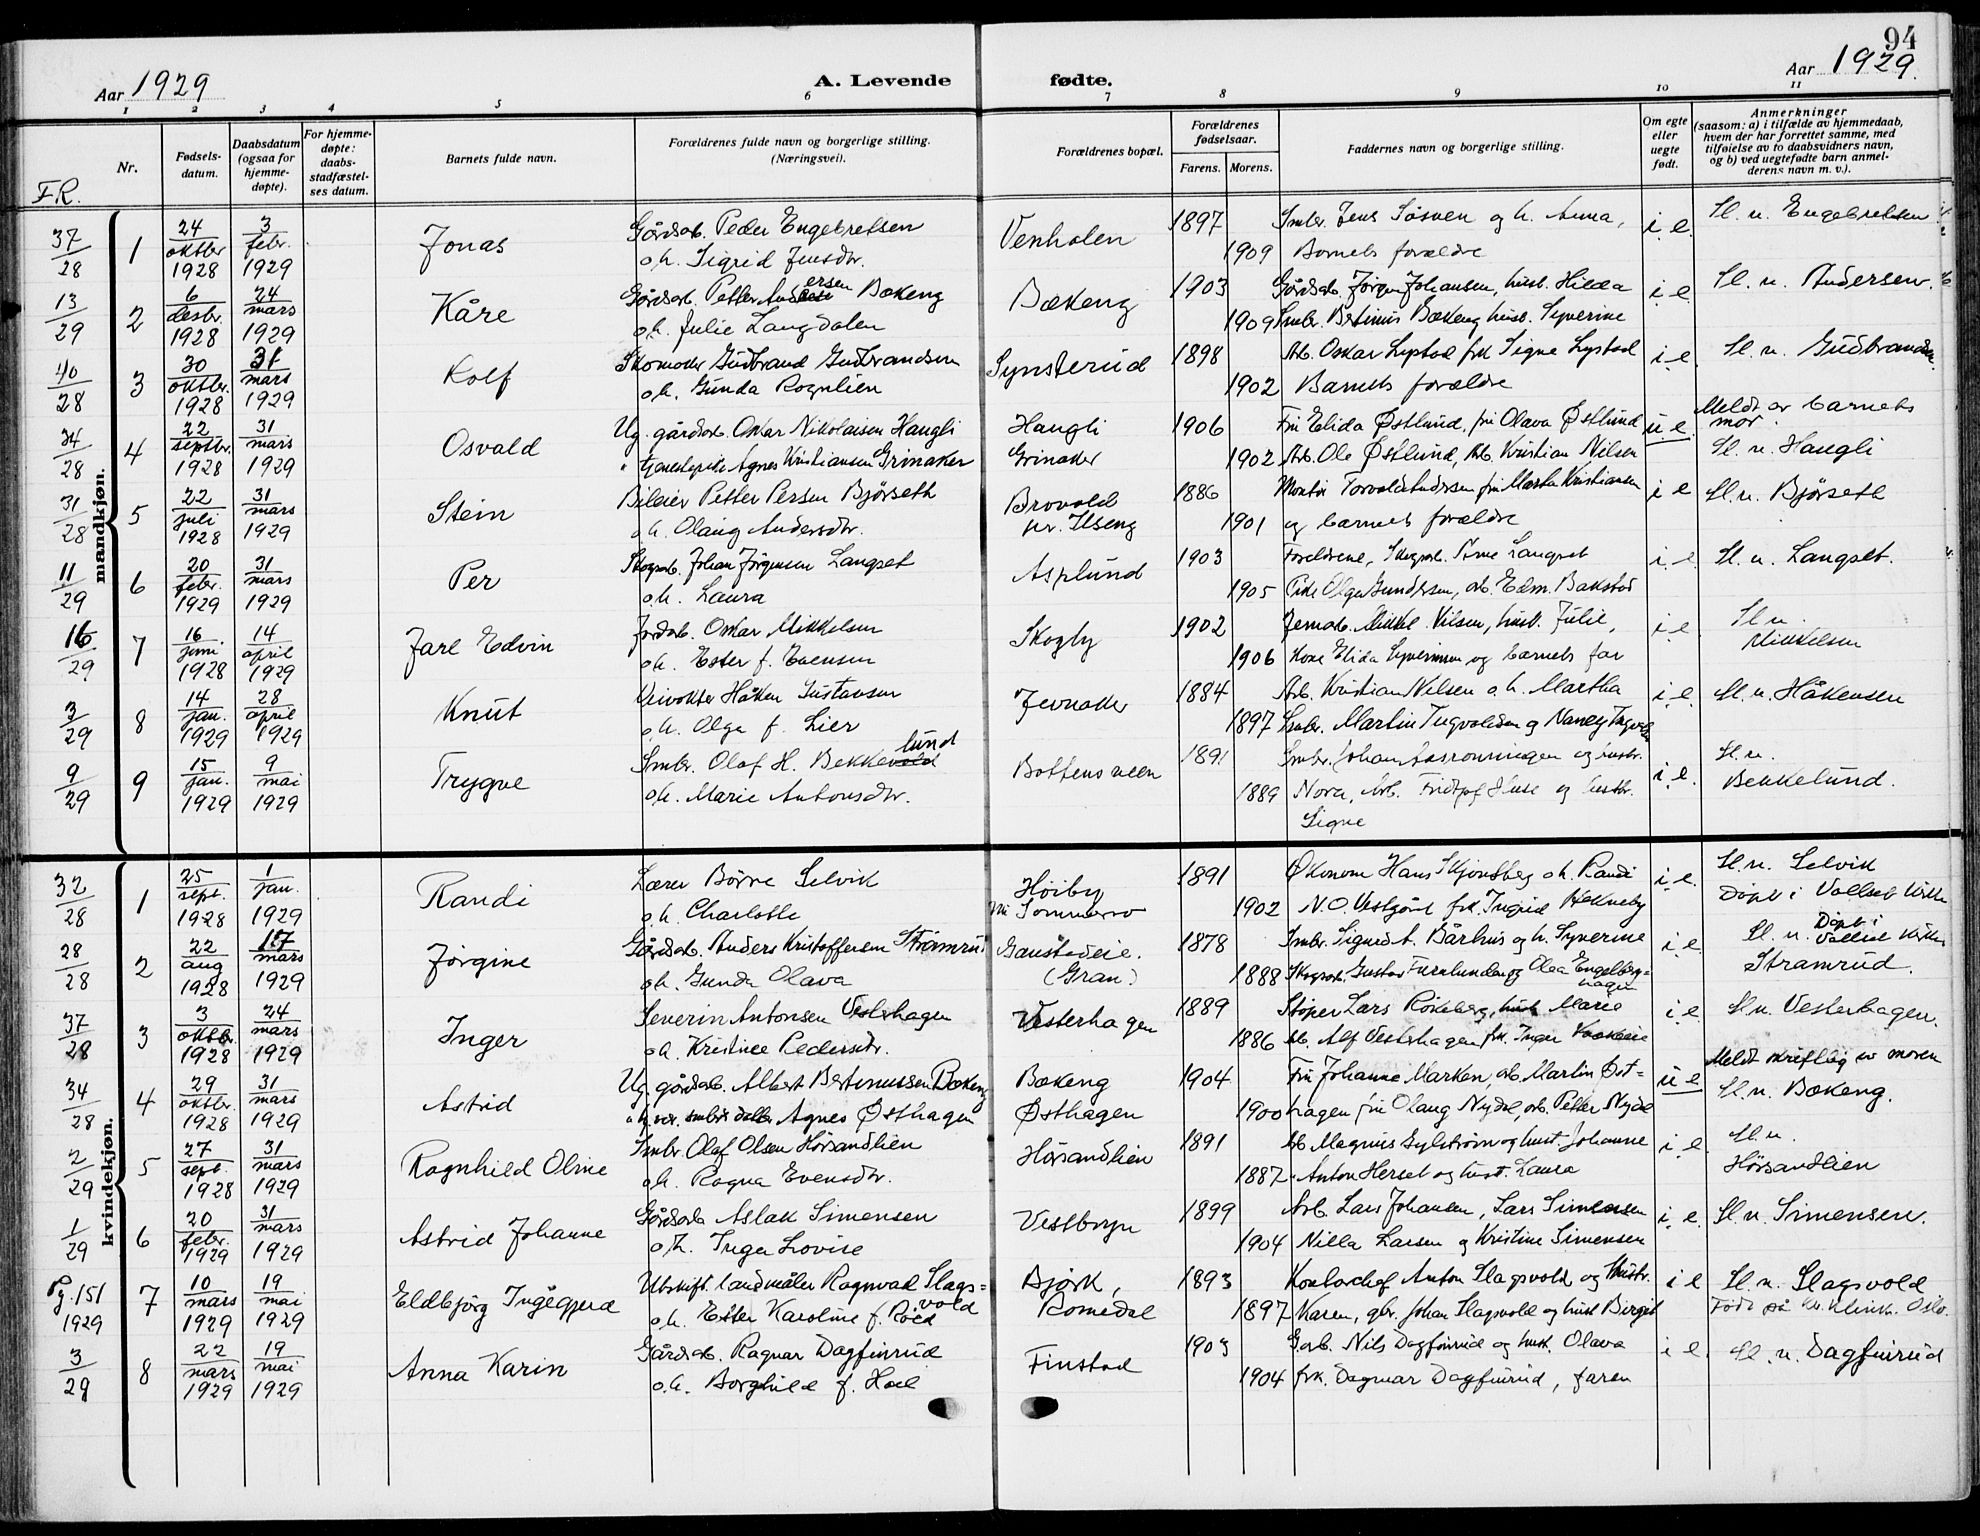 94
Aar 1929
A. Levende fødte.
Aar 1929.
1 2 3 4 5 6 7 8 9 10 11
Nr.
Fødsels-datum.
Daabsdatum (ogsaa for hjemme-døpte).
For hjemme-døpte: daabs-stadfæstel-ses datum.
Barnets fulde navn.
Forældrenes fulde navn og borgerlige stilling. (Næringsvei).
Forældrenes bopæl.
Forældrenes fødselsaar.
Farens. Morens.
Faddernes navn og borgerlige stilling.
Om egte eller uegte født.
Anmerkninger (saasom: a) i tilfælde av hjemmedaab, hvem der har forrettet samme, med tilføielse av to daabsvidners navn, og b) ved uegtefødte barn anmel-derens navn m. v.).
F.R.
mandkjøn.
37/28 1 24 oktbr 1928 3 febr. 1929 Jonas Gårdsarb. Peder Engebretsen Venholen 1897 Smbr. Jens og h. Anna, i e. Sl. n. Engebretsen
o.h. Sigrid Jensdtr. 1909 Barnets forældre
13/29 2 6 desbr. 1928 24 mars 1929 Kåre Gårdsarb. Petter Andersen Bækeng Bækeng 1903 Gårdsarb. Jørgen Johansen, hust. Hilda i e Sl. n. Andersen.
o.h. Julie Langdalen 1909 Smbr. Bertinius Bækeng hust. Syverine
40/28 3 30 oktbr. 1928 31 mars 1929 Rolf Skomaker Gudbrand Gudbrandsen Synsterud 1898 Arb. Oskar Lystad frk Signe Lystad i e. Sl. n. Gudbrandsen.
o.h. Gunda Rognlien 1902 Barnets forældre
34/28 4 22 septbr. 1928 31 mars 1929 Osvald Ug. gårdsarb. Oskar Nikolaisen Haugli Haugli 1906 Fru Elida Østlund, fru Olava Østlund u e. Meldt av barnets mor.
" Agnes Kristiansen Grinaker Grinaker 1902 Arb. Ole Østlund, Arb. Kristian Nilsen Sl. n. Haugli
31/28 5 22 juli 1928 31 mars 1929 Stein Bileier Petter Persen Bjørseth Brovold pr. Ilseng 1886 Montør Torvald Andersen fru Martha Kristiansen i e Sl. n. Bjørseth
o.h. Olaug Andersdtr. 1901 og barnets forældre
11/29 6 20 febr. 1929 31 mars 1929 Per Skogsarb. Johan Jørgensen Langset Asplund 1903 Foreldrene, Skogsarb. Arne Langset i e. Sl. n. Langset.
o.h. Laura 1905 Pike Olga Gundersen, arb. Edm. Bakstad
16/29 7 16. juni 1928 14 april 1929 Jarl Edvin Jordarb. Oskar Mikkelsen Skogly 1902 Jernarb. Mikkel Nilsen, hust. Julie, i e. Sl. n. Mikkelsen
o.h. Ester f. Evensen 1906 Kone Elida Syversen og barnets far
3/29 8 14 jan. 1929 28 april 1929 Knut Veivokter Håken Gustavsen Jevnaker 1884 Arb. Kristian Nilsen o.h. Martha i e. Sl. n. Håkensen
o.h. Olga f. Lier 1897 Smbr. Martin Ingvoldsen og Nancy
9/29 9 15 jan. 1929 9 mai 1929 Trygve Smbr. Olaf H. Bekkelund Bottensveen 1891 Smbr. Johan og hustr. i e. Sl. n. Bekkelund.
o.h. Marie Antonsdtr. 1889 Nora, Arb. Fridtjof Huse og hustr. Signe
kvindekjøn.
32/28 1 25 sept. 1928 1 jan. 1929 Randi Lærer Børre Selvik Høiby nu Sommerro 1891 Økonom Hans Skjønsberg o.h. Randi i e. Sl. n. Selvik
o.h. Charlotte 1902 N.O. Vestgård frk. Ingrid Hekneby Døpt i Vallset kirke
28/28 2 22 aug 1928 17 mars 1929 Jørgine Gårdsarb. Anders Kristoffersen Strømrud Gaustadeie. (Gran) 1878 Smbr. Sigurd A. Bårhus og h. Syverine i e. Sl. n. Døpt i Vallset kirke
o.h. Gunda Olava 1888 Skogsarb. Gustav Furulunden og Olea Engelberg-hagen Strømrud.
37/28 3 3 oktbr. 1928 24 mars 1929 Inger Severin Antonsen Vesterhagen Vesterhagen 1889 Støper Lars Røkeberg, hust Marie i e. Sl. n. Vesterhagen.
o.h. Kristine Pedersdtr. 1886 Arb. Alf Vesterhagen frk. Inger
34/28 4 29 oktbr. 1928 31 mars 1929 Astrid Ug. gårdsarb. Albert Bertinussen Bækeng Bækeng 1904 Fru Johanne Marken, arb. Martin Øst- u e Meldt skriftlig av moren
Agnes Østhagen Østhagen 1900 hagen fru Olaug Nydal, arb. Petter Nydal Sl. n. Bækeng.
2/29 5 27 sept. 1928 31 mars 1929 Ragnhild Oline Smbr. Olaf Olsen Hørsandlien Hørsandlien 1891 Arb. Magnus Gylstrøm og hust. Johanne i e. Sl. n. Hørsandlien
o.h. Ragna Evensdtr. 1887 " Anton Herset og hust. Laura
1/29 6 20 febr. 1929 31 mars 1929 Astrid Johanne Gårdsarb Aslak Simensen Vestborgn 1899 Arb. Lars Johansen, Lars Simensen i e. Sl. n. Simensen.
o.h. Inga Lovise 1904 Nilla Larsen og Kristine Simensen
Pg. 151 1929 7 10 mars 1929 19 mai 1929 Eldbjørg Ingegjerd Utskift. landmåler Ragnvald Slags-vold Bjørk, Romedal 1893 Kontorchef Anton Slagsvold og hustr. i e Sl. n. Slagsvold
o.h. Ester Karoline f. Roed 1897 Karen, gbr. Johan Slagsvold og hust Birgit Født på Kv. klinik. Oslo.
3/29 8 22 mars 1929 19 mai 1929 Anna Karin Gårdsarb. Ragnar Dagfinrud Finstad 1903 Garb. Nils Dagfinrud og hust. Olava i e. Sl. n. Dagfinrud
o.h. Borghild f. Hoel 1904 frk. Dagmar Dagfinrud, faren